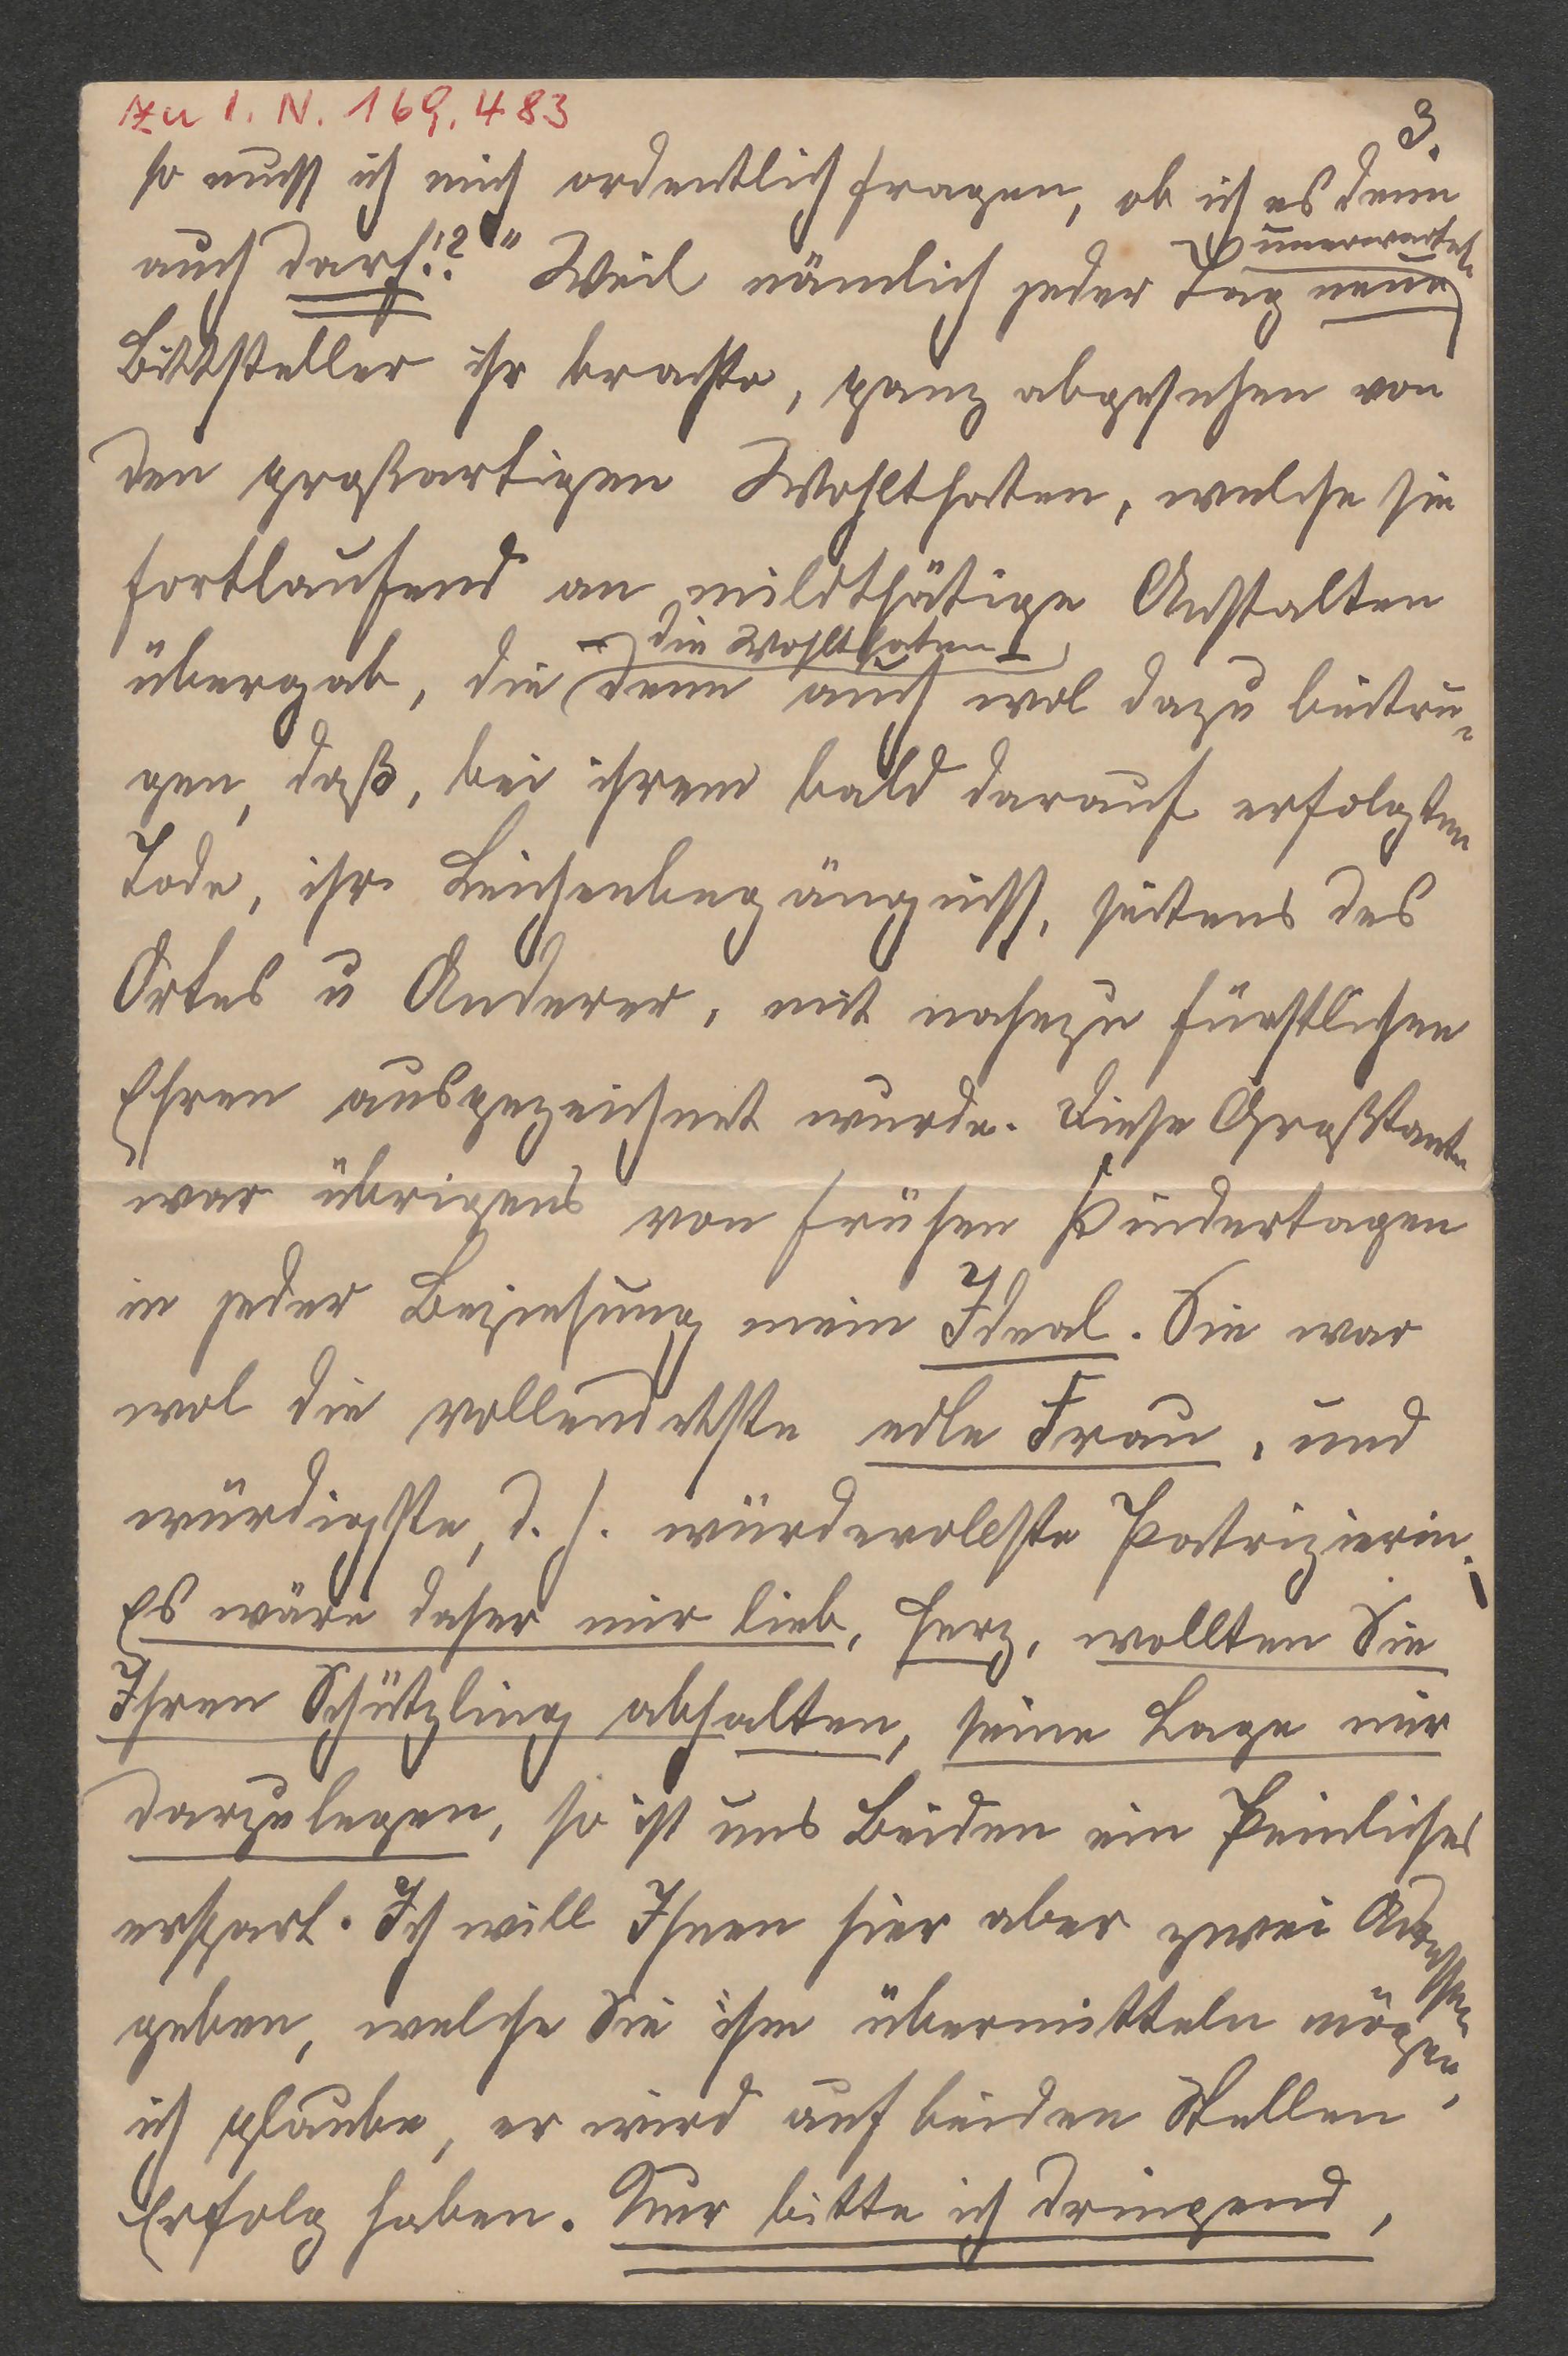 zu I. N. 169.483
3.
so muss ich mich ordentlich fragen, ob ich es denn
auch darf!?" Weil nämlich jeder Tag neue
unerwartet.
Bittsteller ihr brachte, ganz abgesehen von
den großartigen Wohlthaten, welche sie
fortlaufend an mildthätige Anstalten
– die Wohlthaten –
übergab, die denn auch wol dazu beitru-
gen, daß, bei ihrem bald darauf erfolgten
Tode, ihr Leichenbegängniss, seitens des
Ortes u Anderer, mit nahezu fürstlichen
Ehren ausgezeichnet wurde. Diese Großtante
war übrigens von frühen Kindertagen
in jeder Beziehung mein Ideal. Sie war
wol die vollendetste edle Frau, und
würdigste, d. h. würdevollste Patrizierin.
Es wäre daher mir lieb, Herz, wollten Sie
Ihren Schützling abhalten, seine Lage mir
darzulegen, so ist uns Beiden ein Peinliches
erspart. Ich will Ihnen hier aber zwei Adressen
geben, welche Sie ihm übermitteln mögen,
ich glaube, er wird auf beiden Stellen
Erfolg haben. Nur bitte ich dringend,